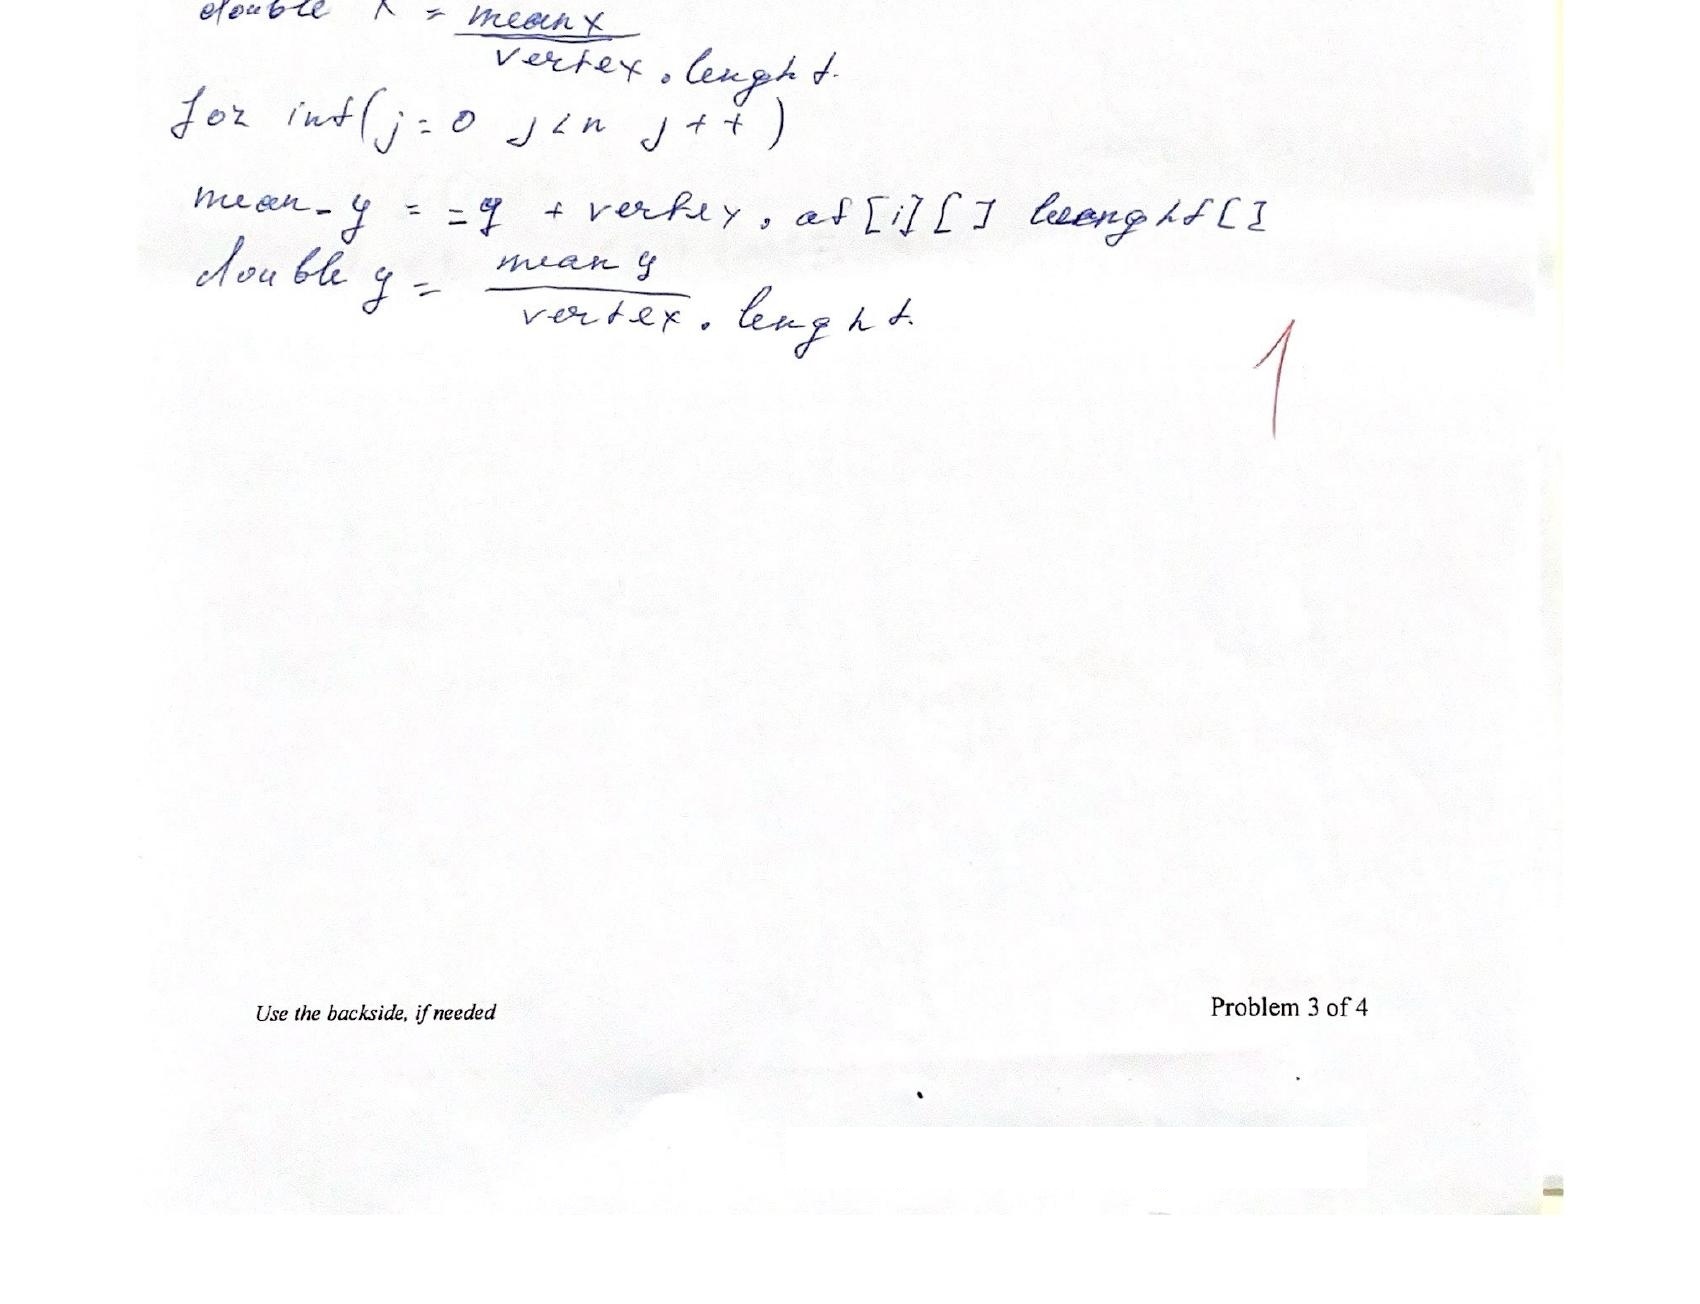 double x = mean x
vertex . lenght.
for int(j=0 j<n j++)
mean-y = =y + vertex, at [i][] [] lenght[]
double y = mean y
vertex. lenght.
1
Use the backside, if needed
Problem 3 of 4